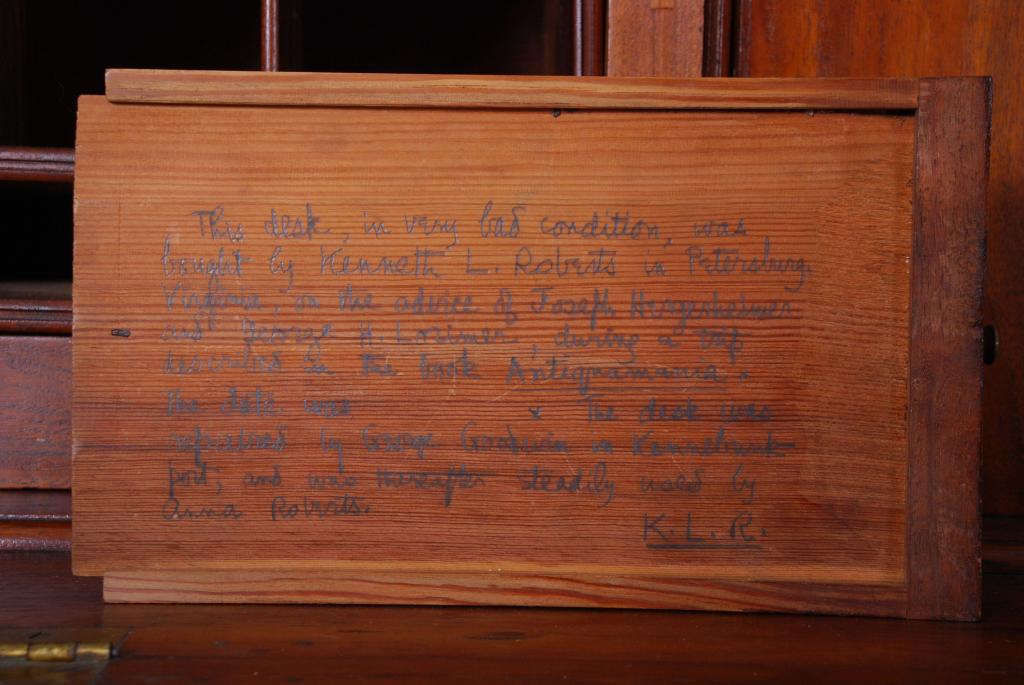 This desk, in very bad condition, was
bought by Kenneth L. Roberts in Petersburg,
Virginia, on the advice of Joseph Hergesheimer
and George H. Lorimer, during a trip
described in the book Antiquamania.
The date was x The desk was
refinished by George Goodwin in Kennebunk-
port, and was thereafter steadily used by
Anna Roberts.
K. L. R.